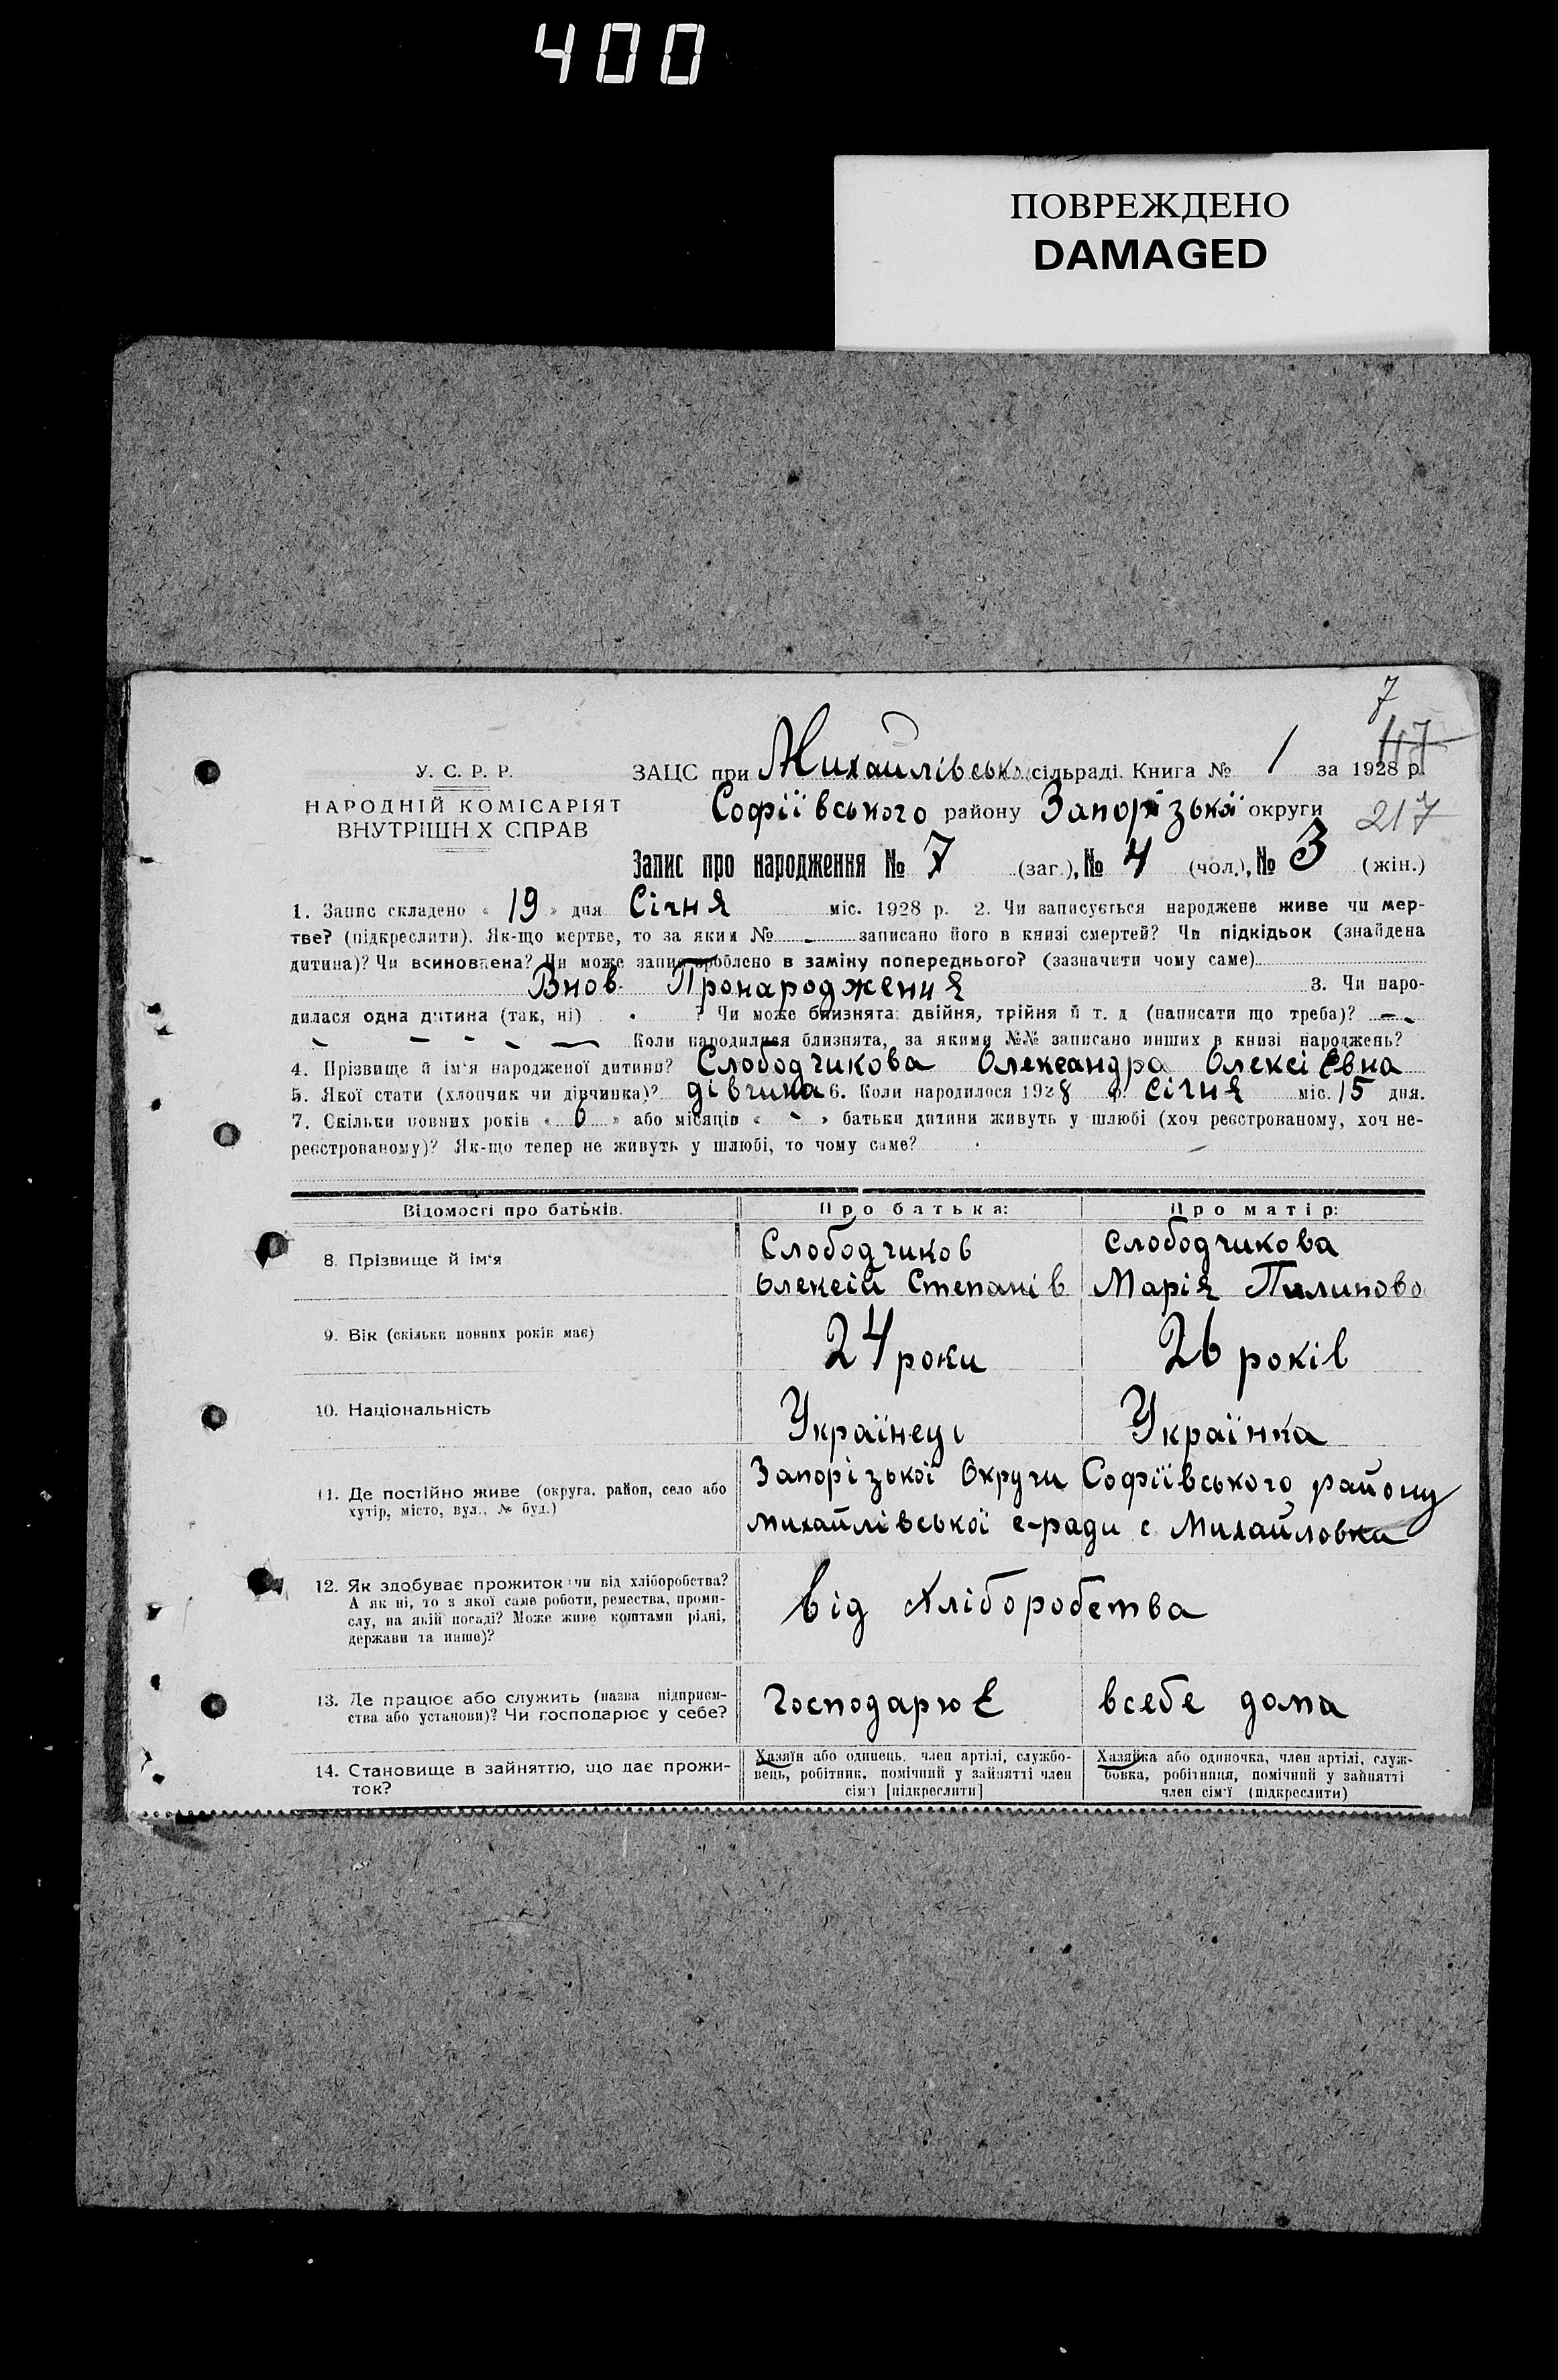 400
ПОВРЕЖДЕНО
DAMAGED
7
47
У. С. Р. Р.
НАРОДНІЙ КОМІСАРІЯТ
ВНУТРІШН Х СПРАВ
ЗАЦС при Михайлівськ сільраді. Книга № 1 за 1928 р.
Софіївського району Запорізької округи
217
Запис про народження № 7 (заг.), № 4 (чол.), № 3 (жін.)
1. Запис складено « 19 » дня Січня міс. 1928 р. 2. Чи записується народжене живе чи мер-
тве? (підкреслити). Як-що мертве, то за яким № - записано його в книзі смертей? Чи підкідьок (знайдена
дитина)? Чи всиновлена? Чи може запис зроблено в заміну попереднього? (зазначити чому саме)
Внов. Пронародження 3. Чи наро-
дилася одна дитина (так, ні) ? Чи може близнята: двійня, трійня й т. д (написати що треба)? - -
- - - - — Коли народилися близнята, за якими №№ записано инших в книзі народжень?
4. Прізвище й ім'я народженої дитини? Слободчикова Олександра Олексієвна
5. Якої стати (хлопчик чи дівчинка)? дівчина 6. Коли народилося 1928 р. Січня міс. 15 дня.
7. Скільки повних років « 6 » або місяців « - » батьки дитини живуть у шлюбі (хоч реєстрованому, хоч не-
реєстрованому)? Як-що тепер не живуть у шлюбі, то чому саме?
Відомості про батьків. Про батька: Про матір:
8. Прізвище й ім'я Слободчиков Слободчикова
Олексій Степанів Марія Пилипова
9. Вік (скільки повних років має) 24 роки 26 років
10. Національність Українець Українка
11. Де постійно живе (округа, район, село або Запорізької Округи Софіївського району
хутір, місто, вул., № буд.) Михайлівської с-ради с Михайловки
12. Як здобуває прожиток чи від хліборобства? від хліборобства
А як ні, то з якої саме роботи, ремества, проми-
слу, на якій посаді? Може живе коштами рідні,
держави та инше)?
13. Де працює або служить (назва підприєм- Господарює всебе дома
ства або установи)? Чи господарює у себе?
14. Становище в зайняттю, що дає прожи- Хазяїн або одинець, член артілі, службо- Хазяйка або одиночка, член артілі, служ-
ток? вець, робітник, помічний у зайнятті член бовка, робітниця, помічний у зайнятті
сім'ї [підкреслити] член сім'ї (підкреслити)